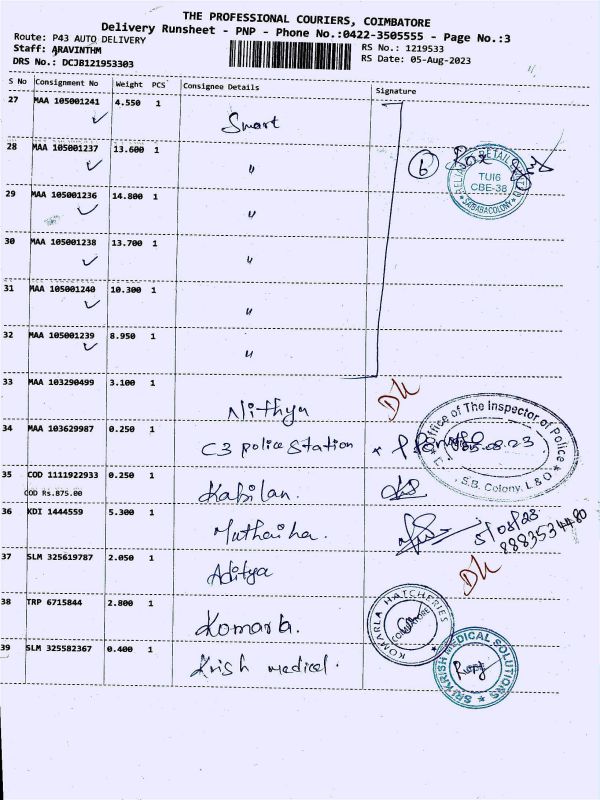 THE PROFESSIONAL COURIERS, COIMBATORE
Delivery Runsheet - PNP - Phone No.:0422-3505555 - Page No.:3
Route: P43 AUTO DELIVERY
Staff: ARAVINTHM
DRS No.: DCJB121953303
RS No.: 1219533
RS Date: 05-Aug-2023
S No Consignment No Weight PCS Consignee Details Signature
27 MAA 105001241 4.550 1 Smart
28 MAA 105001237 13.600 1 "
6
RELIANCE RETAIL LTD
TUI6
CBE-38
SAIBABACOLONY
29 MAA 105001236 14.800 1 "
30 MAA 105001238 13.700 1 "
31 MAA 105001240 10.300 1 "
32 MAA 105001239 8.950 1 "
33 MAA 103290499 3.100 1 Nithya
34 MAA 103629987 0.250 1 C3 police station
Office of The Inspector of Police
05.08.23
S.B. Colony, L & O
35 COD 1111922933 0.250 1 Kabilan.
COD Rs.875.00
36 KDI 1444559 5.300 1 Muthaiha.
5/08/23
8883534480
37 SLM 325619787 2.050 1 Aditya
38 TRP 6715844 2.800 1 Komarla.
KOMARLA HATCHERIES
COIMBATORE
39 SLM 325582367 0.400 1 Krish medical.
SRI KRISH MEDICAL SOLUTIONS